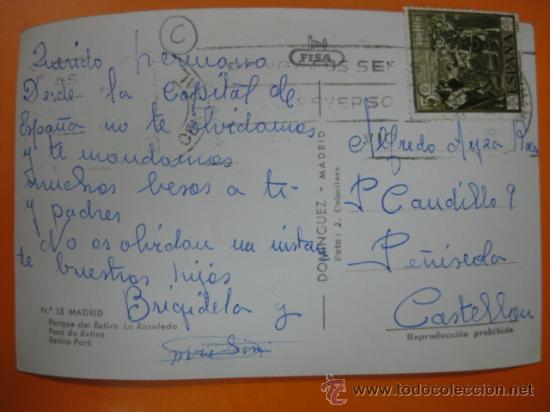 Querido hermano
Desde la Capital de
España no te olvidamos
y te mandamos
muchos besos a ti
y padres
No os olvidan un instan
te buestros hijos
Brigidela y
C
FISA
Nº 15 MADRID
Parque del Retiro. La Rosaleda
Parc du Retiro
Retiro Park
DOMINGUEZ - MADRID
Foto: J. Caballero
50
ESPAÑA
VERSO
Alfredo Ayza
P Caudillo 9
Peñiscola
Castellon
Reproducción prohibida
www.todocoleccion.net